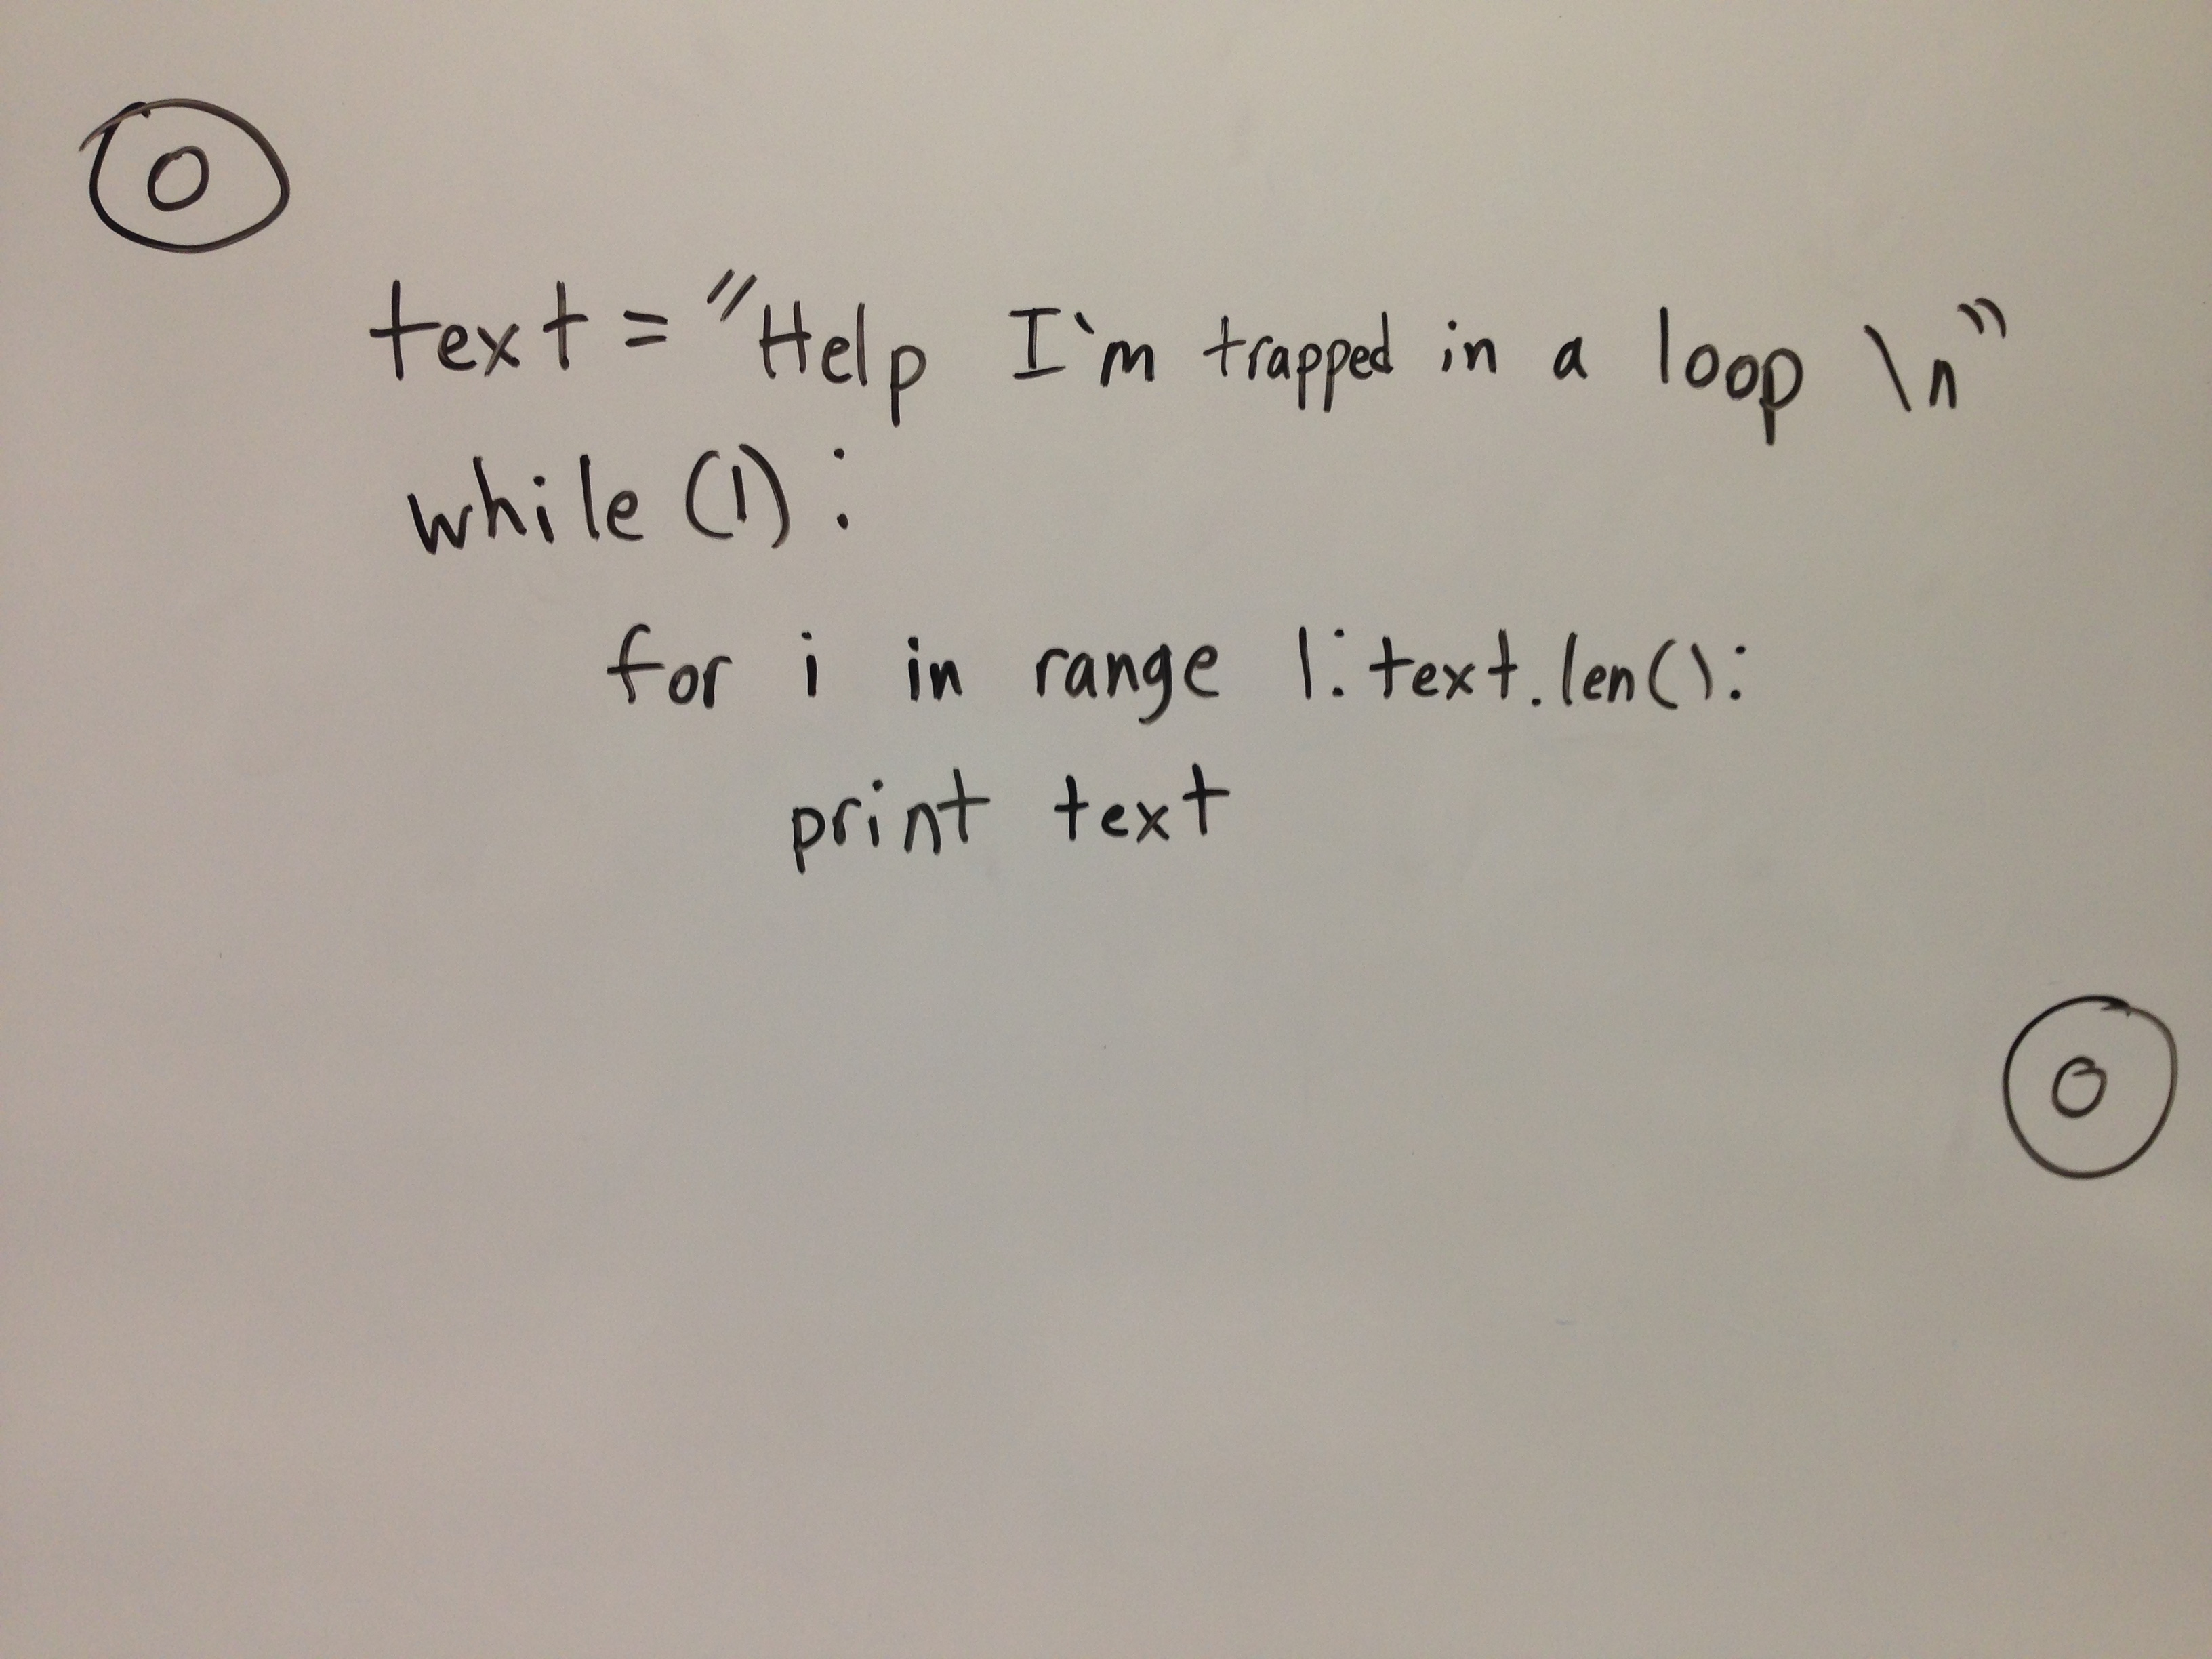 0
text = "Help I'm trapped in a loop \n"
while (1):
for i in range 1:text.len():
print text
0